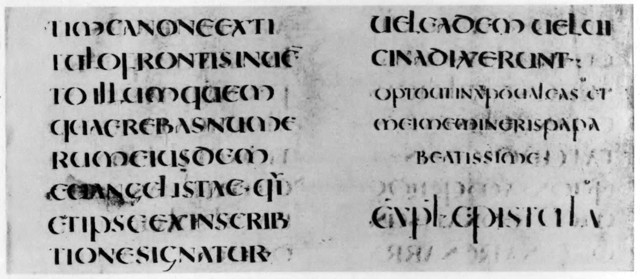 TIMCANONEEXTI
TULOFRONTISINUE̅
TOILLUMQUEM
QUAEREBASNUME
RUMEIUSDEM
EUANGELISTAE·QI̅
ETIPSEEXINSCRIB
TIONESIGNATUR
UELEADEMUELUI
CINADIXERUNT·
OPTOUTINXP̅O̅UALEAS ET
MEIMEMINERISPAPA
BEATISSIME
EXPL·EPISTULA